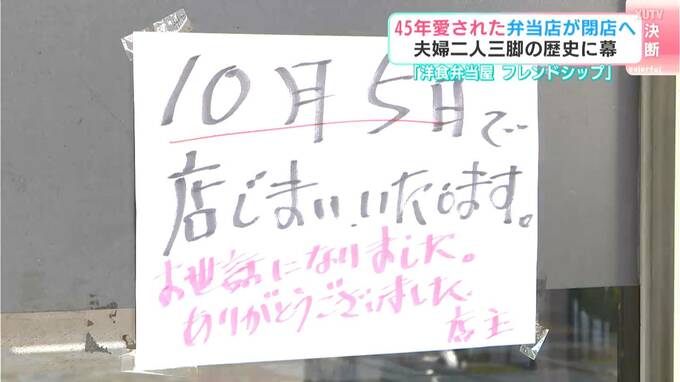 KUTV
45年愛された弁当店が閉店へ
夫婦二人三脚の歴史に幕
「洋食弁当屋 フレンドシップ」
決断
colorful
10月5日で
店じまいいたします。
お世話になりました。
ありがとうございました
店主